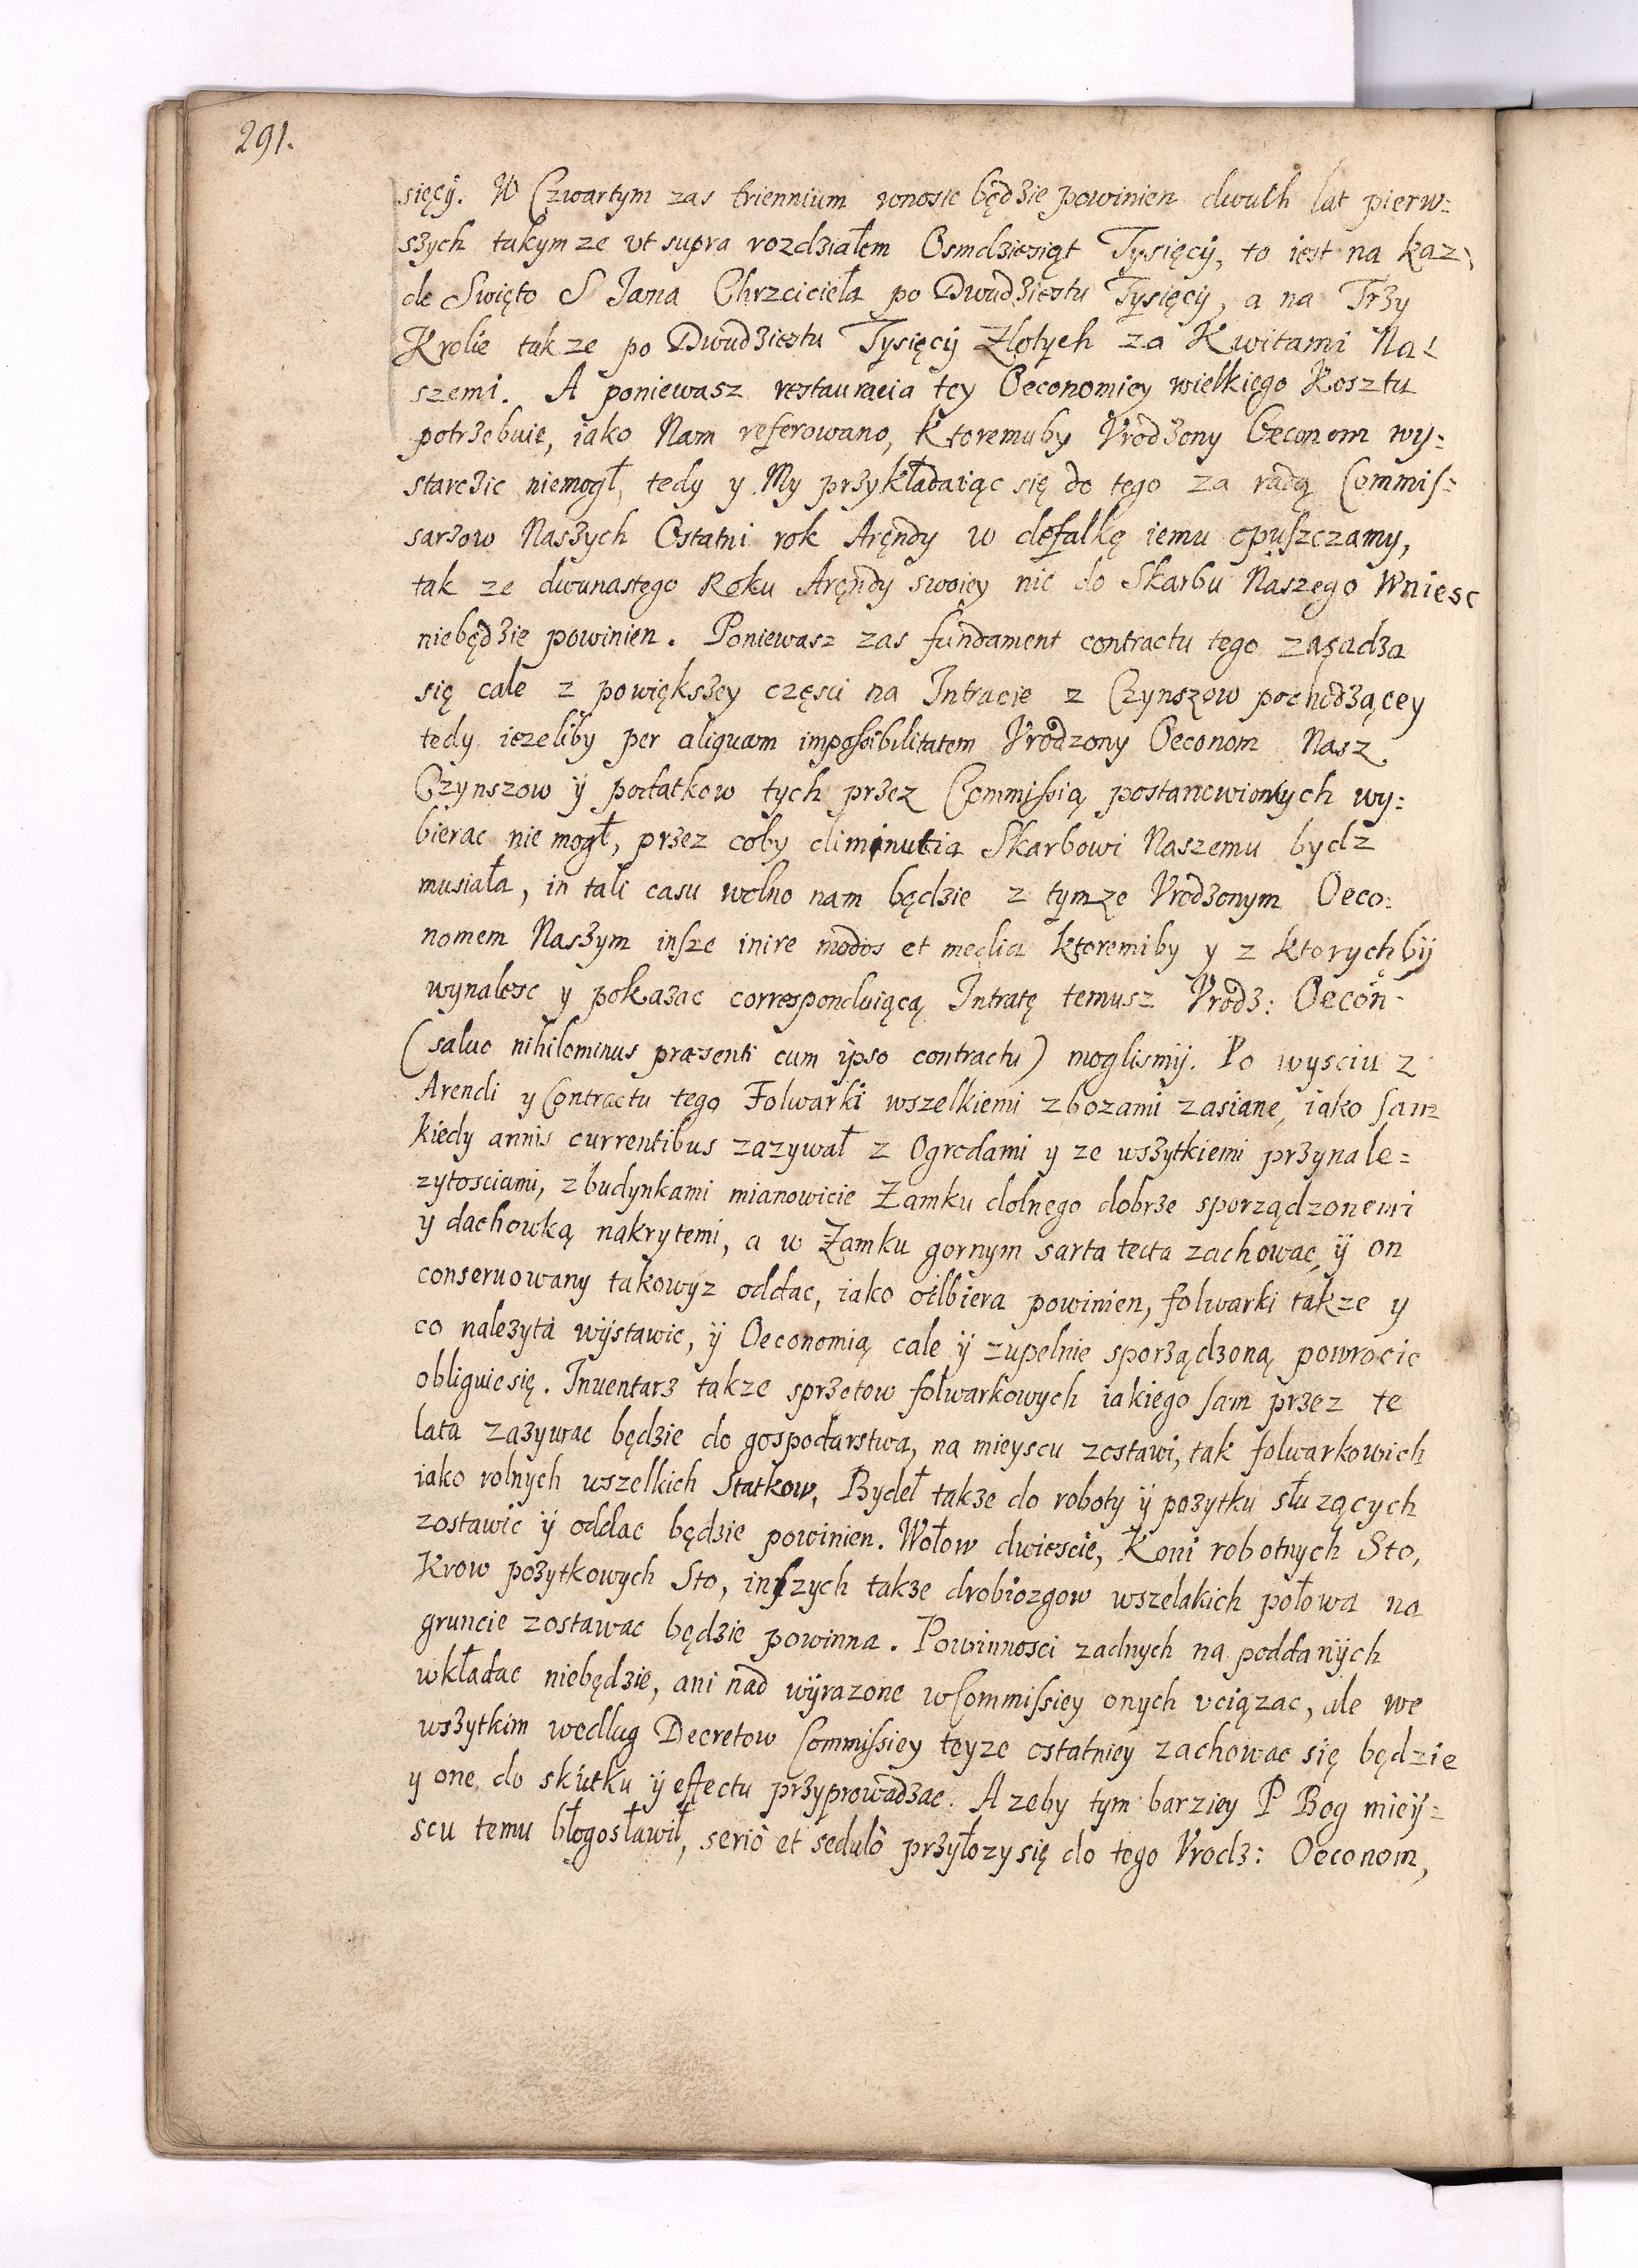 291.
sięcÿ. W Czwartym zas triennium wnosic będzie powinien dwuch lat pierw=
szych takym ze vt supra rozdziałem Osmdziesiąt Tysięcÿ, to iest na kaz
de Swięto S Jana Chrzciciela po Dwudziestu Tysięcÿ, a na Trzy
Krolie takze po Dwudziestu Tysięcÿ Złotych za Kwitami Na=
szemi. A poniewasz restauracia tey Oeconomiey wielkiego Kosztu
potrzebuie, iako Nam referowano, Ktoremuby Vrodzony Oeconom wy=
starczic niemogł, tedy y My przykładaiąc się do tego za radą Commis=
sarzow Naszych Ostatni rok Aręndy w defalkę iemu opuszczamy,
tak ze dwunastego Roku Aręndy swoiey nic do Skarbu Naszego Wniesc
niebędzie powinien. Poniewasz zas fundament contractu tego zasadza
się cale z powiększey częsci na Intracie z Czynszow pochodzącey
tedy iezeliby per aliquam impossibilitatem Vrodzony Oeconom Nasz
Czynszow ÿ podatkow tych przez Commissią postanowionych wy=
bierac nie mogł, przez coby diminutia Skarbowi Naszemu bydz
musiała, in tali casu wolno nam będzie z tymze Vrodzonym Oeco=
nomem Naszym insze inire modos et media ktoremiby y z ktorychbÿ
wynalesc y pokazac correspondviącą Intratę temusz Vrodz: Oecon.
(saluo nihilominus præsenti cum ipso contractu) moglismÿ. Po wysciu z
Arendi y Contractu tego Folwarki wszelkiemi zbozami zasiane, iako sam
kiedy annis currentibus zazywał z Ogrodami y ze wszytkiemi przynale=
zytosciami, z budynkami mianowicie Zamku dolnego dobrze sporządzonemi
y dachowką nakrytemi, a w Zamku gornym sarta tecta zachowac, ÿ on
conseruowany takowyz oddac, iako odbiera powinien, folwarki takze y
co nalezyta wÿstawic, ÿ Oeconomią cale ÿ zupelnie sporządzoną powrocic
obliguie się. Inuentarz takze sprzętow folwarkowych iakiego sam przez te
lata zazywac będzie do gospodarstwa, na mieyscu zostawi, tak folwarkowich
iako rolnych wszelkich Statkow, Bydeł takze do roboty ÿ pozytku słuzących
zostawic ÿ oddac będzie powinien. Wołow dwiescie, Koni robotnych Sto,
Krow pozytkowych Sto, inszych takze drobiozgow wszelakich połowa na
gruncie zostawac będzie powinna. Powinnosci zadnych na poddanÿch
wkładac niebędzie, ani nad wÿrazone w Commissiey onych vciązac, ale we
wszytkim wedlug Decretow Commissiey teyze ostatniey zachowac się będzie
y one do skutku ÿ effectu przyprowadzac. A zeby tym barziey P Bog mieÿ=
scu temu błogosławił, seriò et sedulò przyłozy się do tego Vrodz: Oeconom,